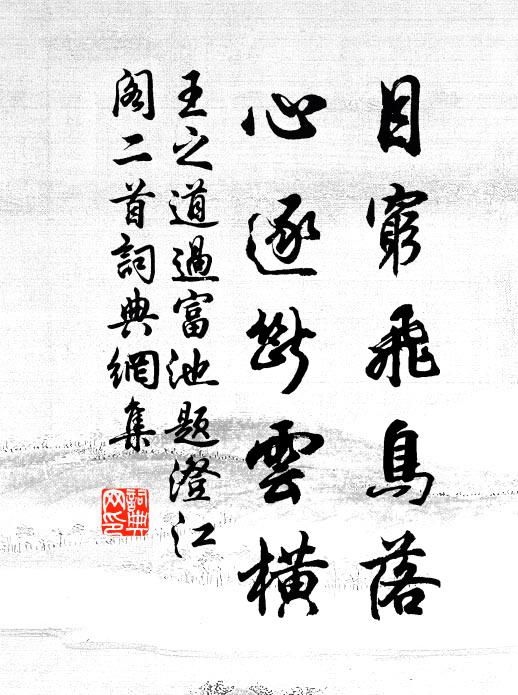 目窮飛鳥落
心逐斷雲橫
王之道過富池題澄江
閣二首詞典網集
詞典
网印